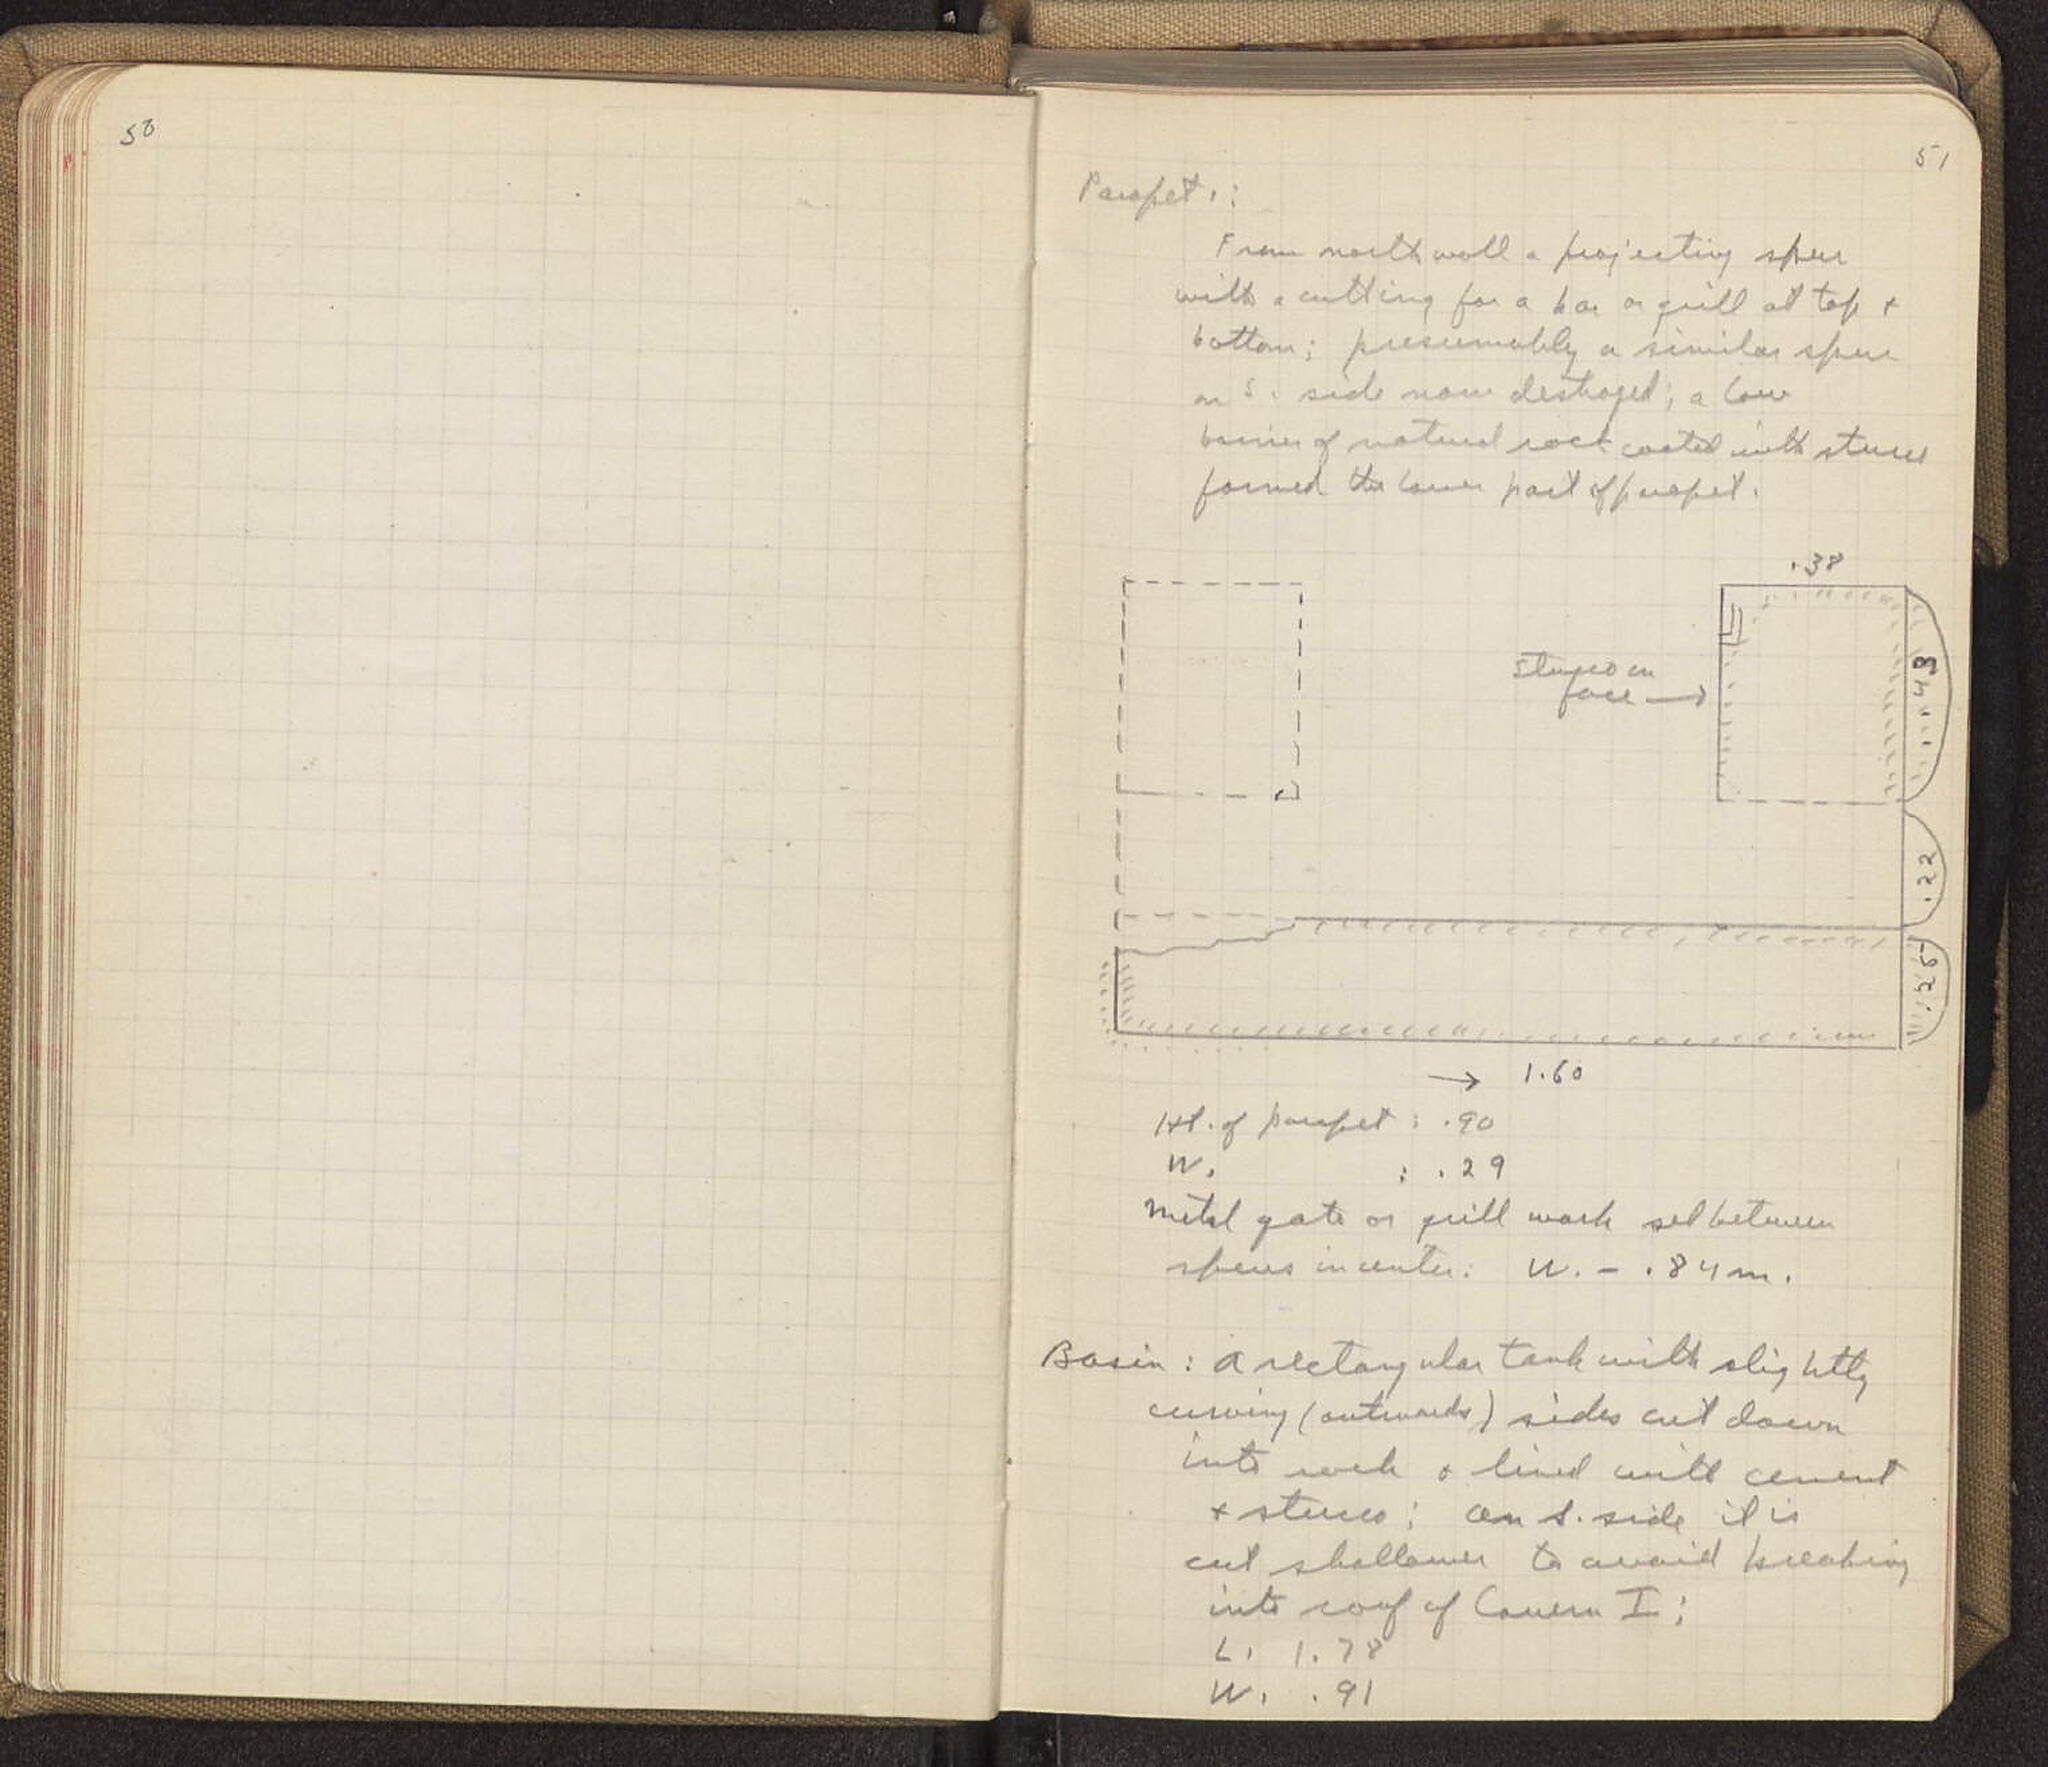 50
51
Parapet:
From north wall a projecting spur
with a cutting for a bar or grill at top +
bottom; presumably a similar spur
on S. side now destroyed; a low
barrier of natural rock coated with stucco
formed the lower part of parapet.
.38
stucco on
face →
.43
.22
.25
→ 1.60
Ht. of parapet : .90
W. : .29
Metal gate or grill work set between
spurs in center: W. - .84 m.
Basin: a rectangular tank with slightly
curving (outwards) sides cut down
into rock & lined with cement
+ stucco; on S. side it is
cut shallower to avoid breaking
into roof of Cavern I;
L. 1.78
W. .91